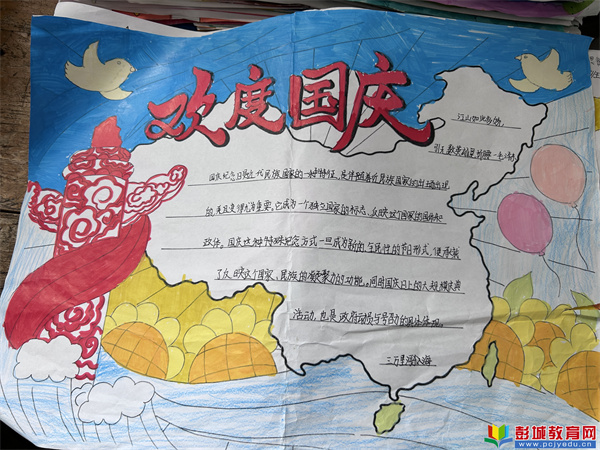 欢度国庆
江山如此多娇,
引无数英雄竞折腰 — 毛泽东
国庆纪念日是近代民族国家的一种特征,是伴随着近代民族国家的出现而出现
的,并且变得尤为重要,它成为一个独立国家的标志,反映这个国家的国体和
政体。国庆这种特殊纪念方式一旦成为新的、全民性的节日形式,便承载
了反映这个国家、民族的凝聚力的功能。同时国庆日上的大规模庆典
活动,也是政府动员与号召力的具体体现。
三万里河东入海
彭城教育网
www.pcjyedu.cn